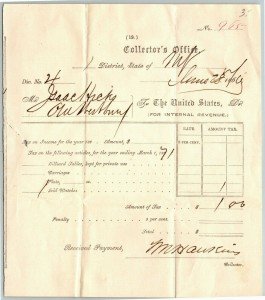 3.
No. 965
(19.)
Collector's Office,
1 District, State of NY
Div. No. 2
M Isaac Hicks To The United States, Dr.
Old Westbury
(FOR INTERNAL REVENUE.)
PER CENT. AMOUNT TAX.
Tax on Income for the year 187 Amount, $
Tax on following articles for the year ending March 1, 1871
Billiard Tables, kept for private use
Carriages
Plate,
Gold Watches 1
Amount of Tax $ 1 00
Penalty per cent.
Total $
Received Payment,
Collector.